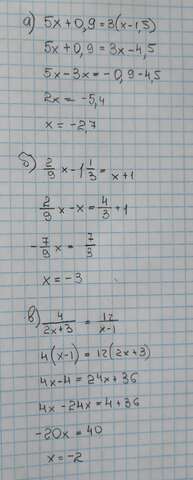 а) 5x+0,9=3(x-1,5)
5x+0,9=3x-4,5
5x-3x=-0,9-4,5
2x=-5,4
x=-2,7
б) 2/9 x - 1 1/3 = x+1
2/9 x - x = 4/3 + 1
-7/9 x = 7/3
x=-3
в) 4/(2x+3) = 12/(x-1)
4(x-1)=12(2x+3)
4x-4=24x+36
4x-24x=4+36
-20x=40
x=-2